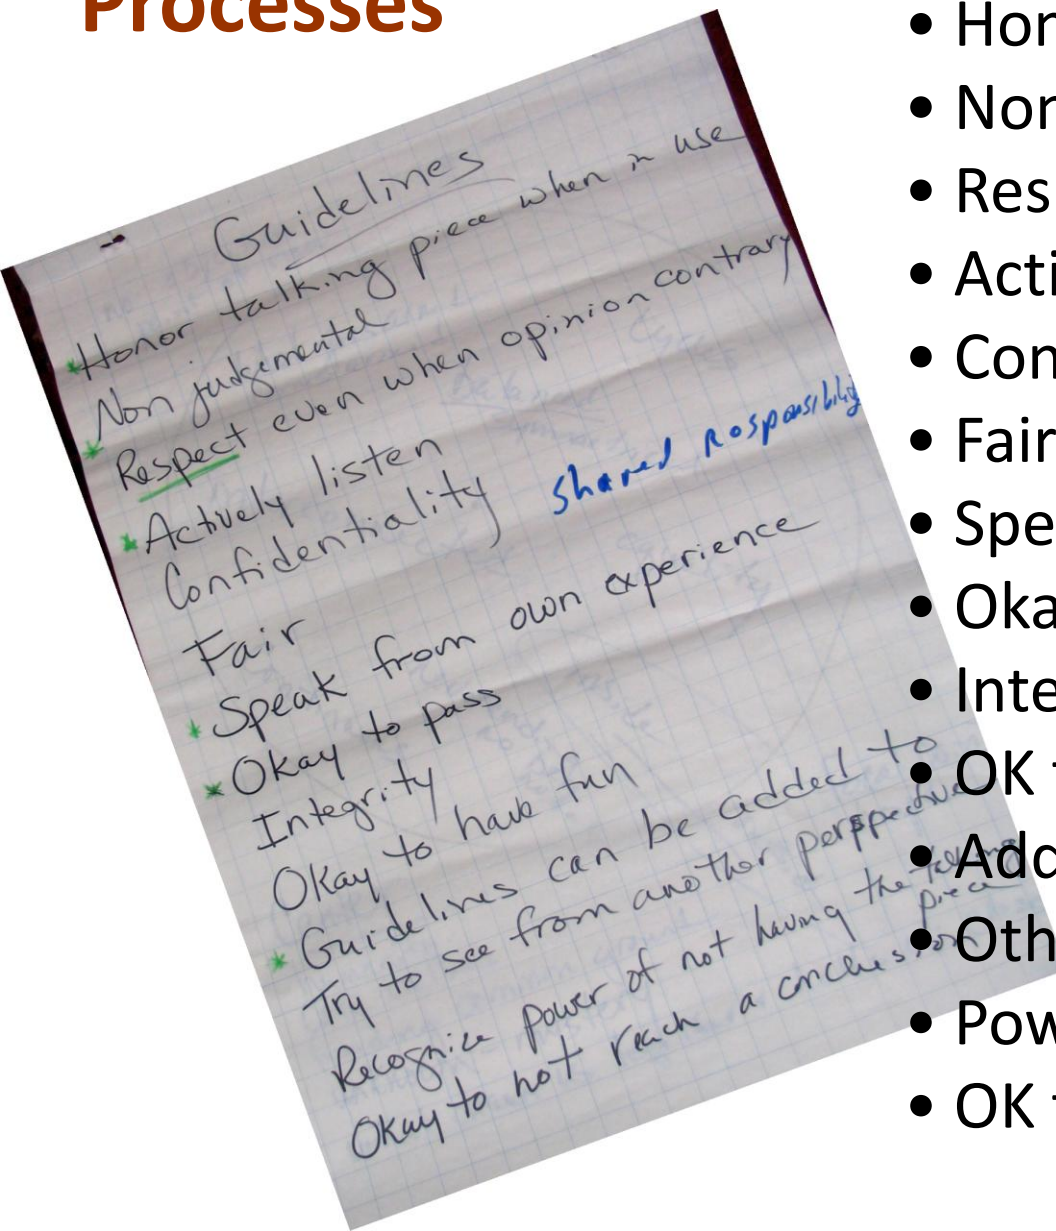 Processes
Guidelines
*Honor talking piece when in use
Non judgemental
*Respect even when opinion contrary
*Actively listen
Confidentiality shared responsibility
Fair
*Speak from own experience
*Okay to pass
Integrity
Okay to have fun
*Guidelines can be added to
Try to see from another perspective
Recognize power of not having the talking piece
Okay to not reach a conclusion
• Hon
• Non
• Res
• Acti
• Con
• Fair
• Spe
• Oka
• Inte
• OK t
• Add
• Oth
• Pow
• OK t